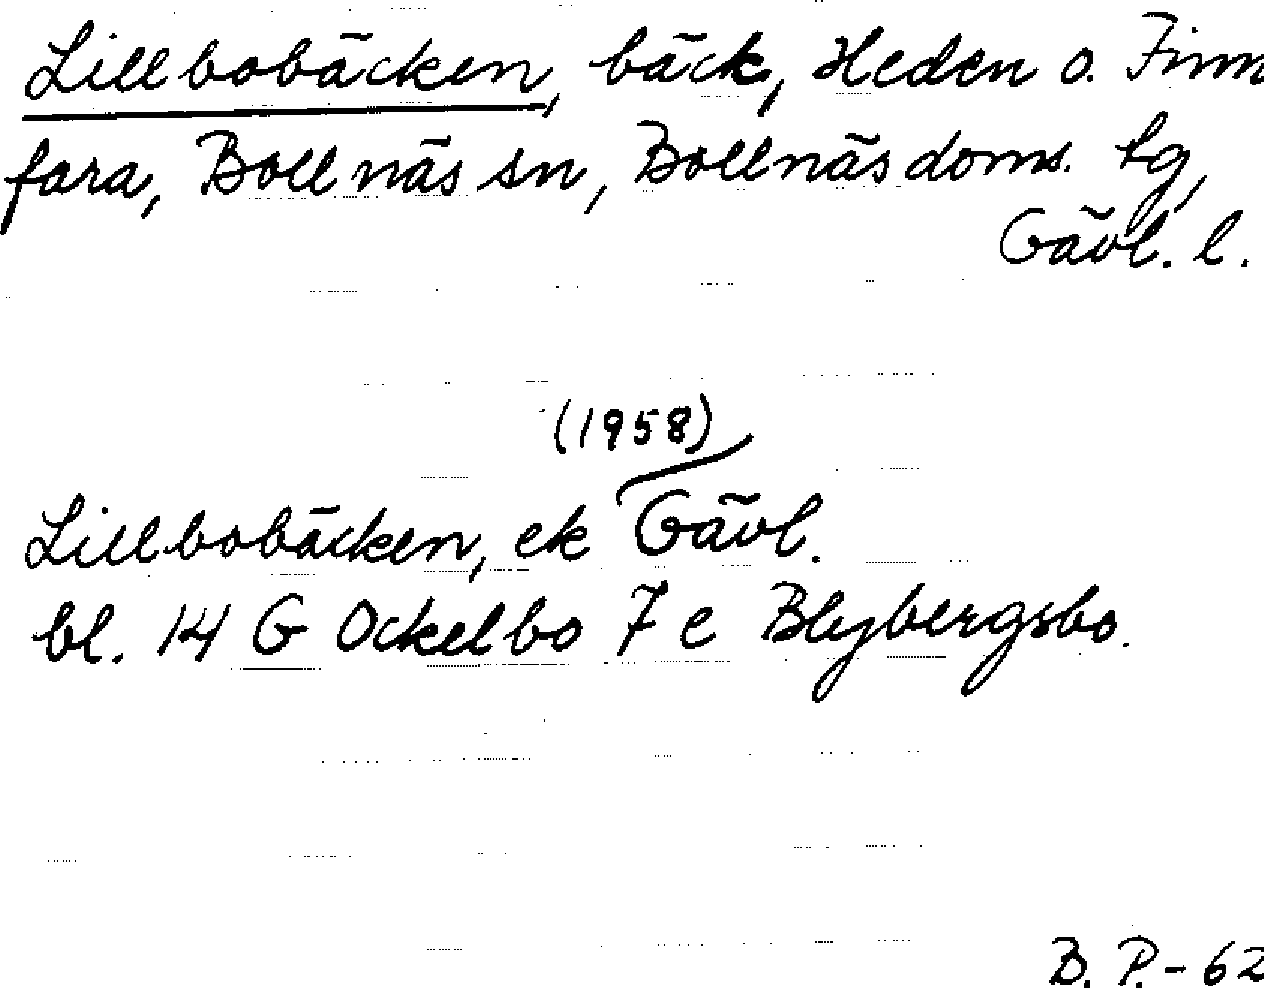 Lillbobäcken, bäck, Heden o. Finn
fara, Bollnäs sn, Bollnäs doms. tg,
Gävl. l.
(1958)
Lillbobäcken, ek Gävl.
bl. 14 G Ockelbo 7 e Blybergsbo.
B. P. - 62